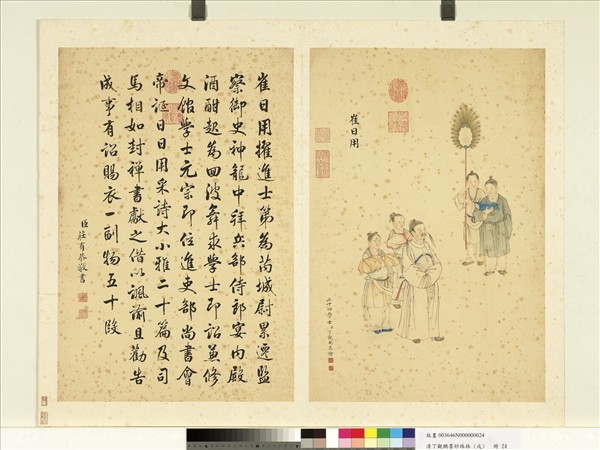 崔日用擢進士第為芮城尉累遷監
察御史神龍中拜兵部侍郎宴內殿
酒酣起為回波舞求學士即詔兼修
文館學士元宗即位進吏部尚書會
帝誕日日用采詩大小雅二十篇及司
馬相如封禪書獻之借以諷諭且勸告
成事有詔賜衣一副物五十段
臣莊有恭敬書
崔日用
故畫 003646N000000024
清丁觀鵬畫妙珠林（戌） 冊 24